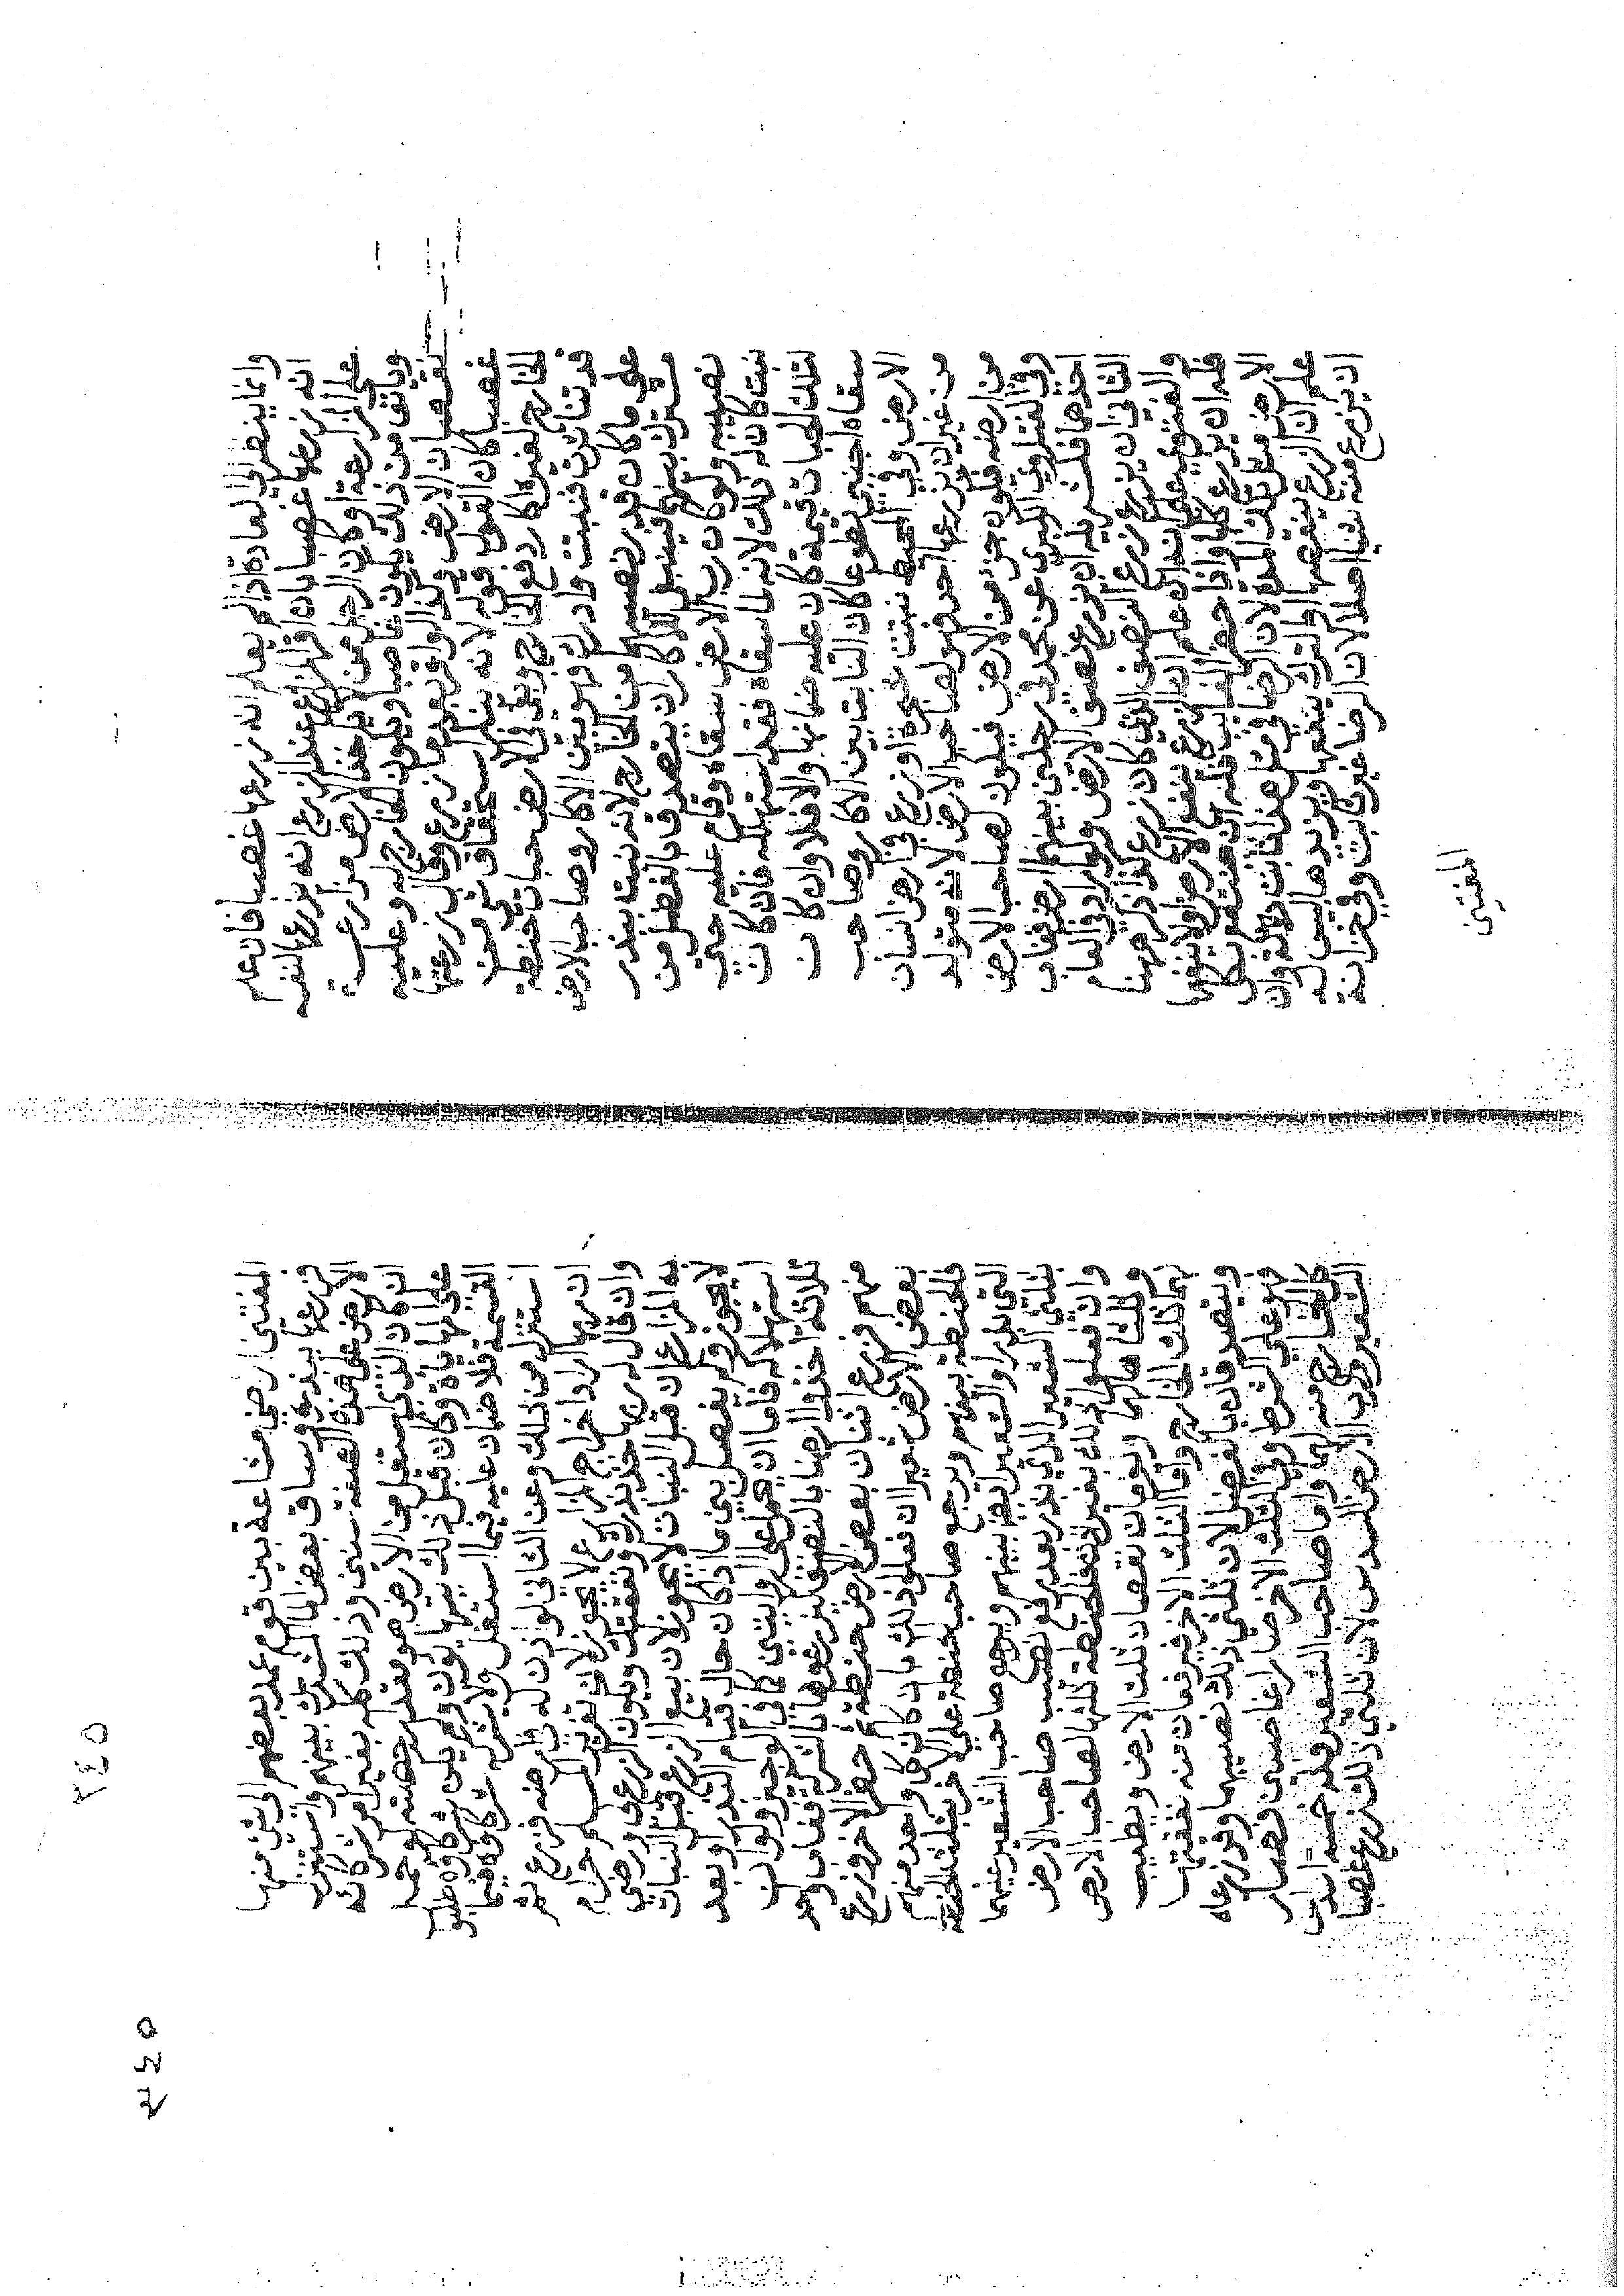 وانما ينظر الى العادة اذا لم يعلم انه زرعها غصبا فان علم
انه زرعها غصبا بان اقر المزارع عند الزرع انه يزرعها لنفسه
على المزارعة او كان الرجل ممن لا ياخذ الارض مزارعة
ويانف من ذلك يكون غاصبا ويكون الخارج له وعليه
نقصان الارض وكذا لو اقر بعد ما زرع وقال زرعتها
غصبا كان القول قوله لانه ينكر استحقاق شي من
الخارج لغيره اكار رفع الخارج وبقي في الارض حبات حنطة
قد تناثرت فنبتت وادركت فهو بين الاكار وصاحب الارض
على ما كان قدر نصيبهما من الخارج لانه نبت ببذر
مشترك بينهما فينبغي للاكار ان يتصدق بالفضل من
نصيبه ولو كان رب الارض سقاه وقام عليه حتي
نبت كان له ذلك لانه لما سقاه فقد استهلكه فان كان
لتلك الحبات قيمة كان عليه ضمانها والا فلا وان كان
سقاه اجنبي تطوعا كان النابت بين الاكار وصاحب
الارض وفي المحيط نبتت شجرة او زرع في ارض انسان
من غير ان يزرعها احد فهو لصاحب الارض لانه متولد
من ارضه جزء من الارض فيكون لصاحب الارض
وفي الفتاوي الكبري عن محمد في رجلين بينهما ارض فغاب
احدهما فلشريكه ان يزرع نصف الارض ولو اراد في العام
الثاني ان يزرع زرع النصف الذي كان زرع كذا ذكر ههنا
والفتوي على انه ان علم ان الزرع ينفع الارض ولا ينقصها
فله ان يزرع كلها واذا حضر الغايب فله ان ينتفع بكل
الارض مثل تلك المدة لان الرضا في مثل هذا ثابت دلالة وان
علم ان الزرع ينقصها والترك ينفعها ويزيدها ليس له
ان يزرع منه شيا اصلا لان الرضا غير ثابت وفي خزانة
المفتين
٣٤٥
٣٤٥
المفتين ارضي مشاعة بين قوم عمد بعضهم الى شي منها
فزرعها ببذره وساق بعضها المشترك بينهم واستنزل
الارض على هذه الصفة سنين وذلك كله بغير امر شركائه
ان كان الذي استغل من الارض هو مقدار حصته لو حملها
على المهاياة وكان قبل ذلك يتهايؤن ولم يكن شركاوه طلبوا
القسمة فلا ضمان عليه فيما استغل ولا يشركه شركاوه فيما
استنزل من ذلك وعن الثاني لو اذن له في ارضه فزرع ثم
ان ربها اراد اخراج المزارع لا يجوز لان تغرير المسلم حرام
وان قال له ربها خذ بذرك ونفقتك ويكون الزرع لي ورضي
به المزارع ان قبل النبات لا يجوز لان بيع الزرع قبل النبات
لا يجوز ولم يفصل بين ما اذا كان حال قيام البذر او بعد
استهلاكه فاما ان يحمل على الروايتين كما في الوجيز ولو ان
ثلاثة اخذوا ارضا بالنصف ليزرعوها بالشركة فغاب واحد
منهم فزرع اثنان بعض الارض حنطة ثم حضر الاخر وزرع
بعض الارض شعيرا ان فعلوا ذلك باذن كل واحد منهم
فالحنطة بينهم ويرجع صاحب الحنطة على الاخر بثلث الحنطة
التي بذرا والشعير ايضا بينهم ويرجع صاحب الشعير عليهما
بثلثي الشعير الذي بذر بعد رفع نصيب صاحب الارض
وان فعلوا ذلك بغير اذن فالحنطة ثلثها لصاحب الارض
وثلثاها لهما ويغرمان نقصان ثلث الارض ويطيب
لهما ثلث الخارج واما الثلث الاخر فيرفعان منه نفقتهما
ويتصدقان بالفضل لان ثلثي ذلك نصيبهما وقد زرعاه
فهو على الشرط وفي الثلث الاخر صارا غاصبين فصار
كل الخارج منه لهما واما صاحب الشعير فله خمسة اسداس
الشعير ولرب الارض السدس لان ثلثي ذلك زرع غصبا